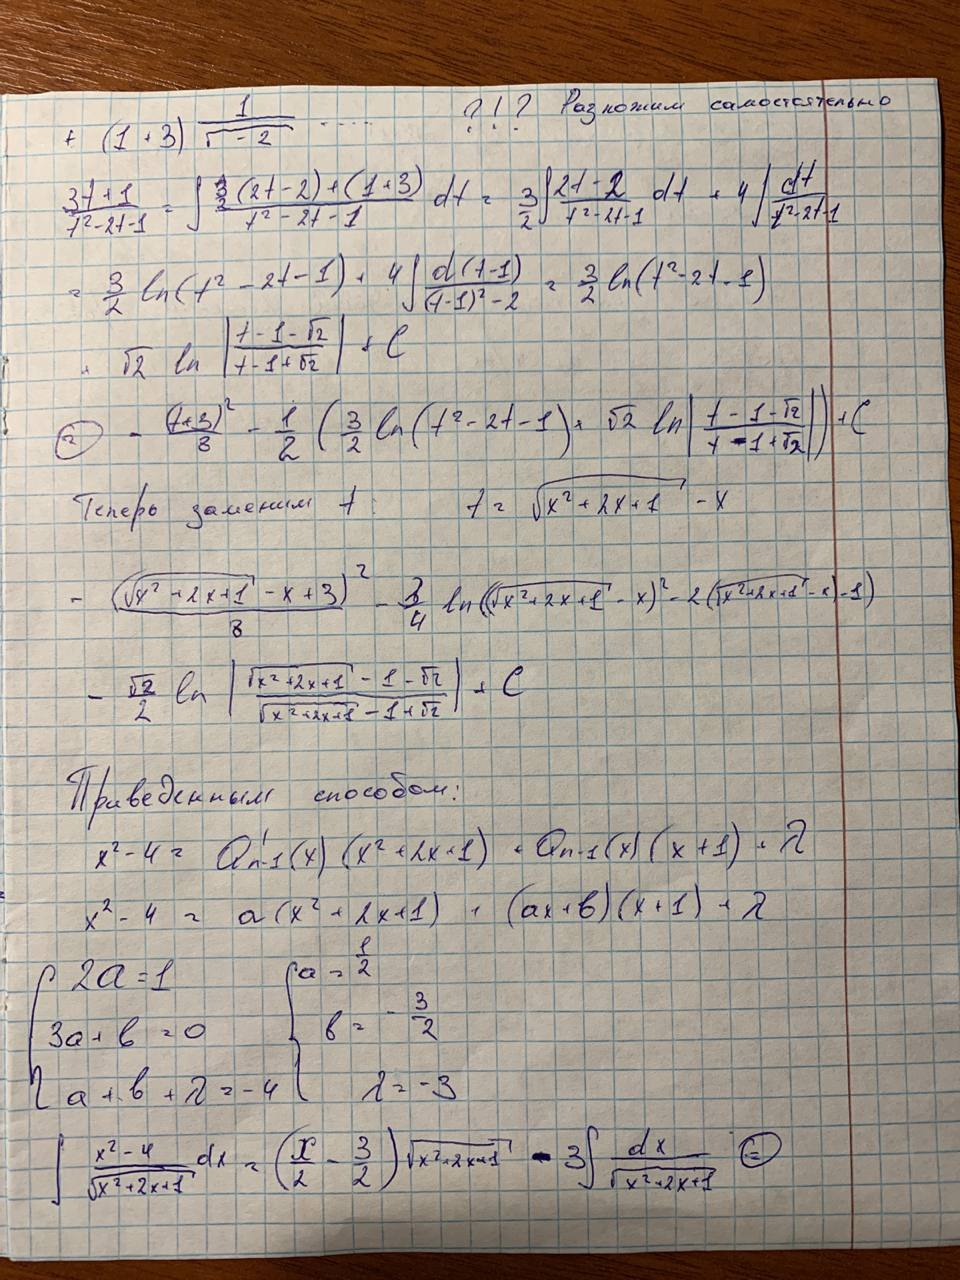 + (1+3) 1/(√ -2) ..... ?!? Разложим самостоятельно
(3t+1)/(t²-2t-1) = ∫ (3/2(2t-2)+(1+3))/(t²-2t-1) dt = 3/2 ∫ (2t-2)/(t²-2t-1) dt + 4∫ dt/(t²-2t-1)
= 3/2 ln(t²-2t-1) + 4∫ d(t-1)/((t-1)²-2) = 3/2 ln(t²-2t-1)
+ √2 ln |(t-1-√2)/(t-1+√2)| + C
= - (t+3)²/8 - 1/2 (3/2 ln(t²-2t-1) + √2 ln|(t-1-√2)/(t-1+√2)|) + C
Теперь заменим t: t = √(x²+2x+1) - x
- (√(x²+2x+1) - x+3)²/8 - 3/4 ln((√(x²+2x+1) - x)² - 2(√(x²+2x+1) - x) - 1)
- √2/2 ln |(√(x²+2x+1) - 1 - √2)/(√(x²+2x+1) - 1+√2)| + C
Приведенным способом:
x²-4 = Q'n-1(x) (x²+2x+1) + Qn-1(x) (x+1) + λ
x²-4 = a(x²+2x+1) + (ax+b)(x+1) + λ
{ 2a=1 { a = 1/2
3a+b=0 b = -3/2
a+b+λ=-4 λ=-3
∫ (x²-4)/√(x²+2x+1) dx = (x/2 - 3/2)√(x²+2x+1) - 3∫ dx/√(x²+2x+1) =